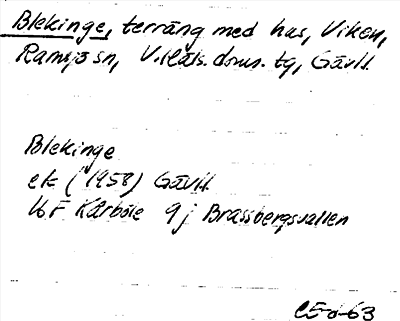 Blekinge, terräng med hus, Viken,
Ramsjö sn, V.Häls. doms. tg, Gävll.
Blekinge
ek (1958) Gävll.
16 F Kårböle 9 j Brassbergsvallen